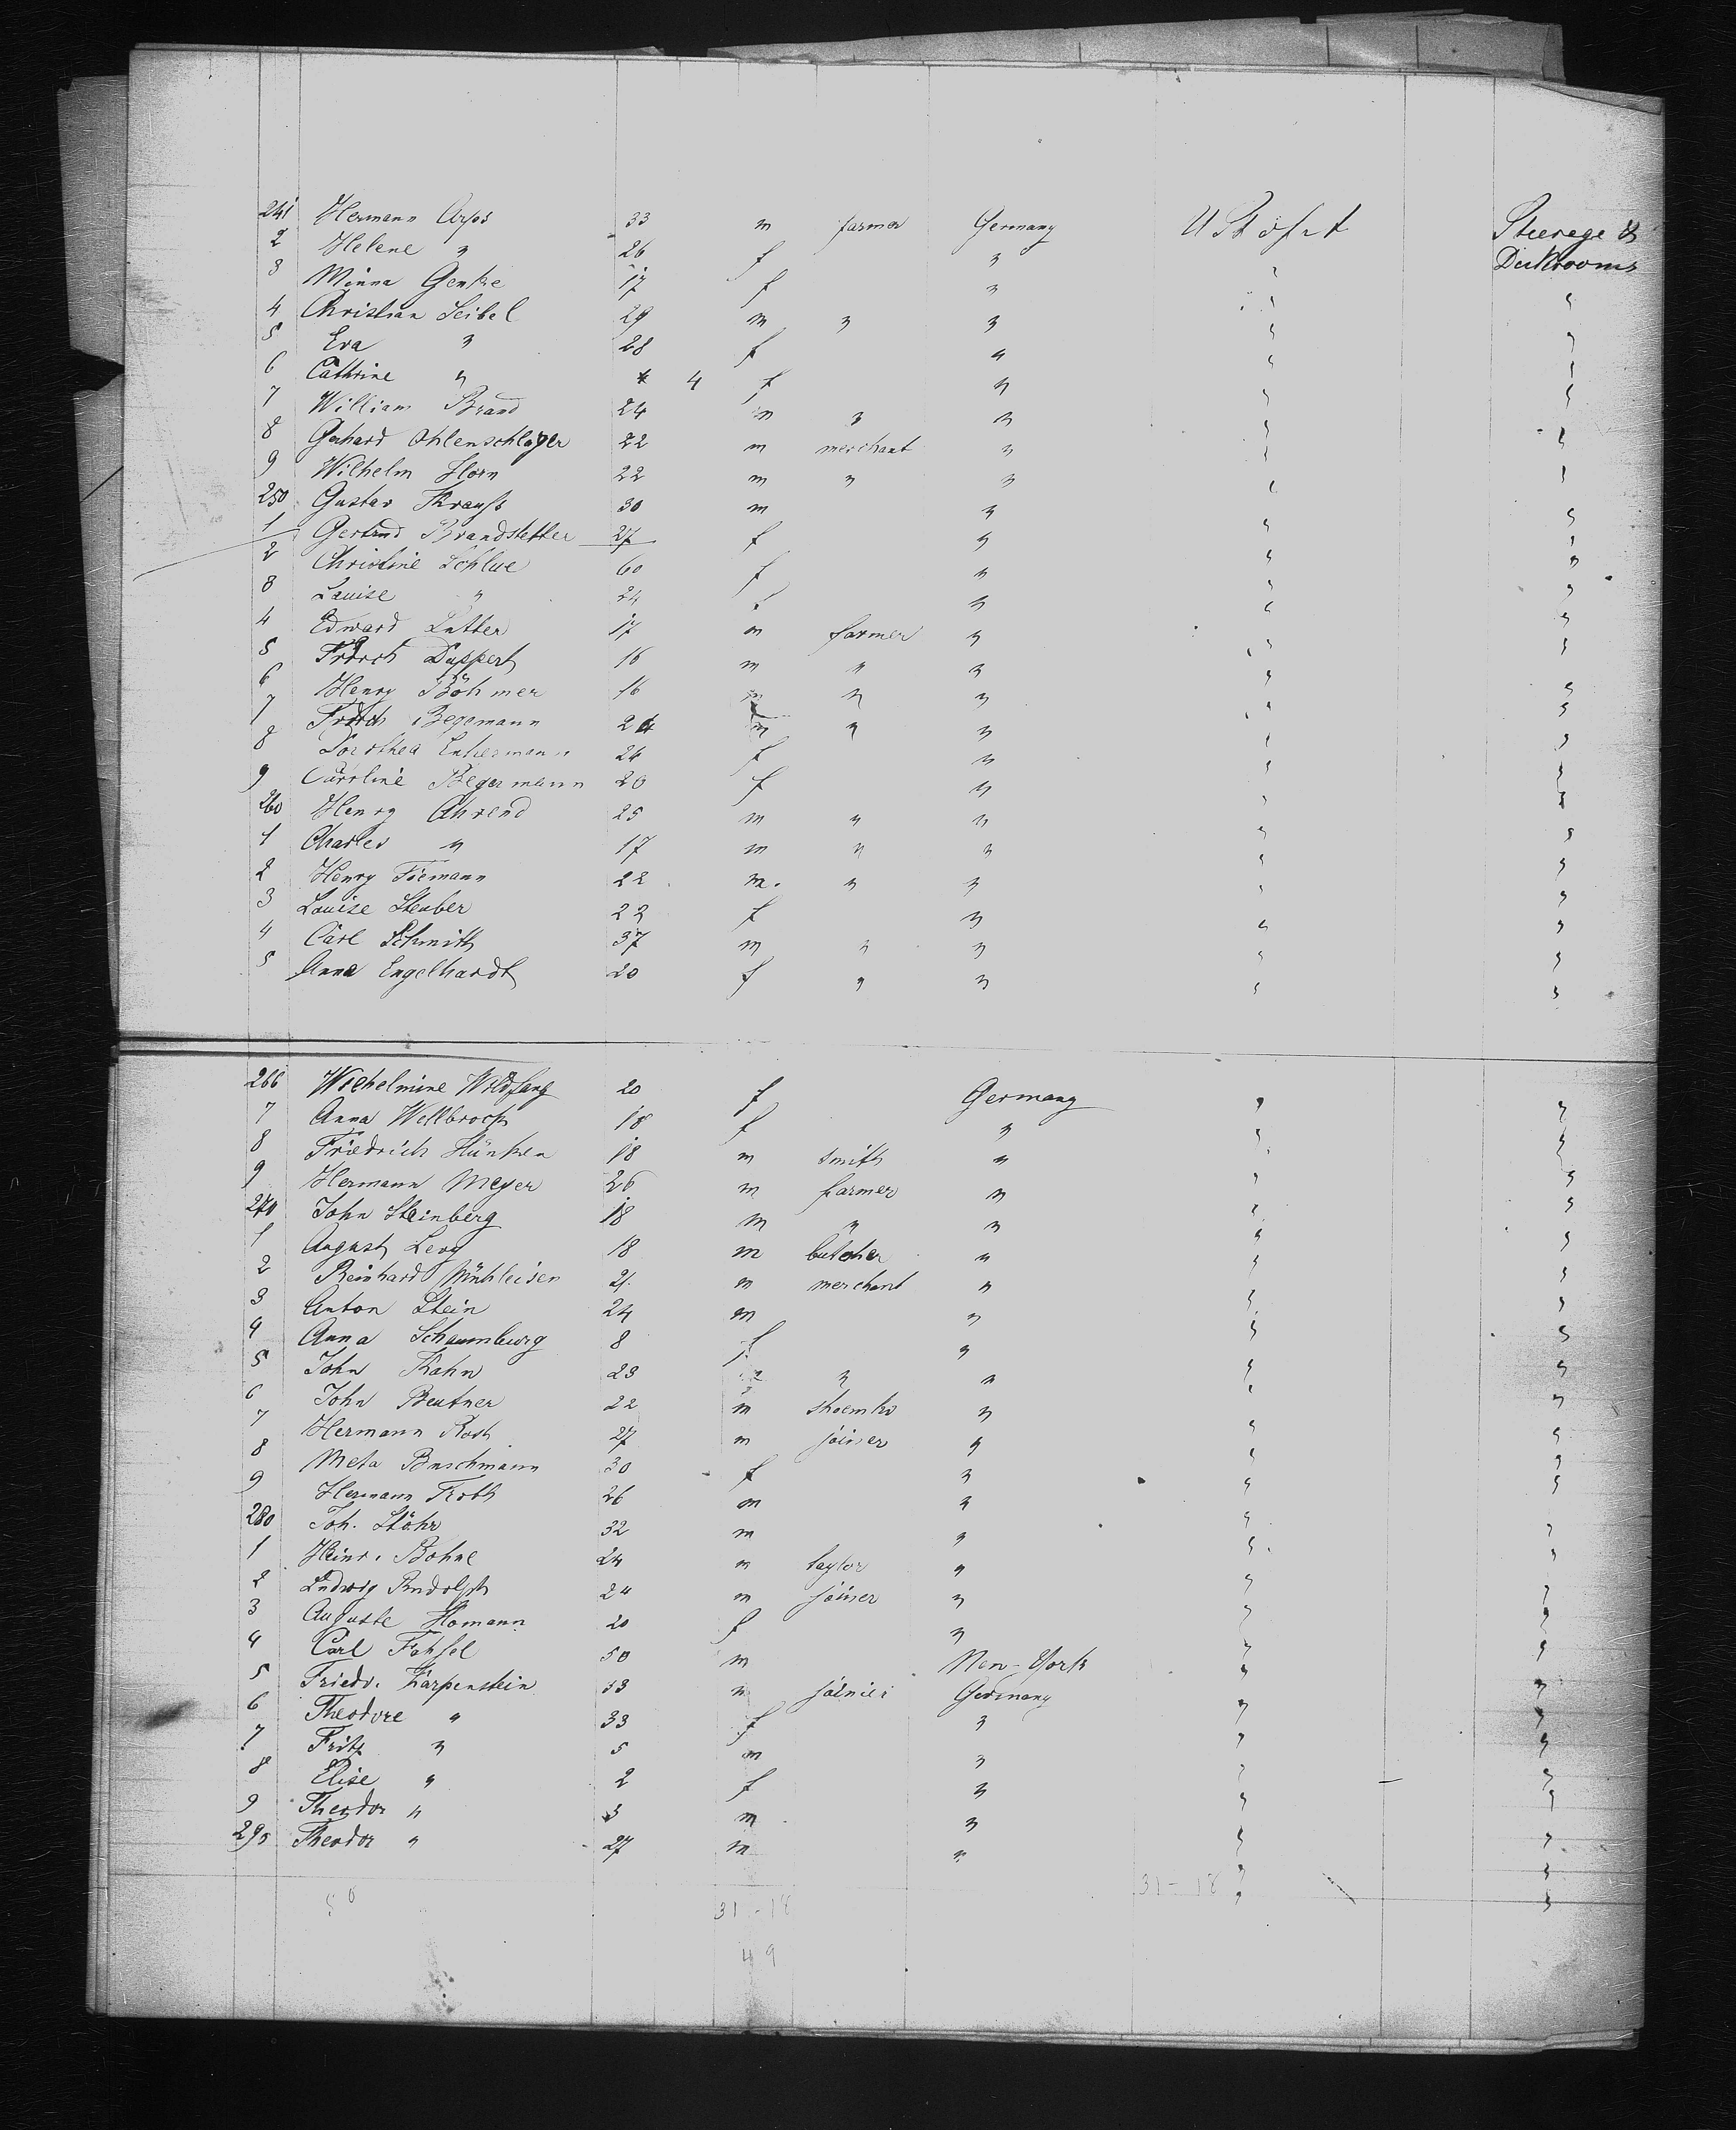 241 Hermann Arps 33 m farmer Germany U St of N A Steerege &
2 Helene " 26 f " " Deckrooms
3 Minna Genke 17 f " " "
4 Christian Seibel 29 m " " " "
5 Eva " 28 f " " "
6 Cathrine " 4 f " " "
7 William Brand 24 m " " " "
8 Gerhard Ohlenschlager 22 m merchant " " "
9 Wilhelm Horn 22 m " " " "
250 Gustav Krauss 30 m " " "
1 Gertrud Brandstetter 27 f " " "
2 Christine Schlue 60 f " " "
3 Louise " 24 f " " "
4 Edward Lutter 17 m farmer " " "
5 Frdrch Duppert 16 m " " " "
6 Henry Böhmer 16 m " " " "
7 Frdrch Begemann 24 m " " " "
8 Dorothea Enkermann 24 f " " "
9 Caroline Begermann 20 f " " "
260 Henry Ahrend 25 m " " " "
1 Charles " 17 m " " " "
2 Henry Tiemann 22 m " " " "
3 Louise Steuber 22 f " " "
4 Carl Schmith 37 m " " " "
5 Anna Engelhardt 20 f " " " "
266 Wilhelmine Wildfang 20 f Germany " "
7 Anna Wellbrock 18 f " " "
8 Friedrich Hünken 18 m smith " " "
9 Hermann Meyer 26 m farmer " " "
270 John Steinberg 18 m " " " "
1 August Levy 18 m butcher " " "
2 Reinhard Mühleisen 21 m merchant " " "
3 Anton Stein 24 m " " "
4 Anna Schaumburg 8 f " " "
5 John Kahn 23 m " " " "
6 John Beutner 22 m shoemkr " " "
7 Hermann Rost 27 m joiner " " "
8 Meta Buschmann 30 f " " "
9 Hermann Troth 26 m " " "
280 Joh. Stöhr 32 m " " "
1 Heinr. Bohne 24 m taylor " " "
2 Ludwig Rudolph 24 m joiner " " "
3 Auguste Homann 20 f " " "
4 Carl Fohsel 50 m New-York " "
5 Friedr. Karpenstein 33 m joinier Germany " "
6 Theodore " 33 f " " "
7 Fritz " 5 m " " "
8 Elise " 2 f " " "
9 Theodor " 3 m " " "
290 Theodor " 27 m " " "
50 31-18 31-18
49